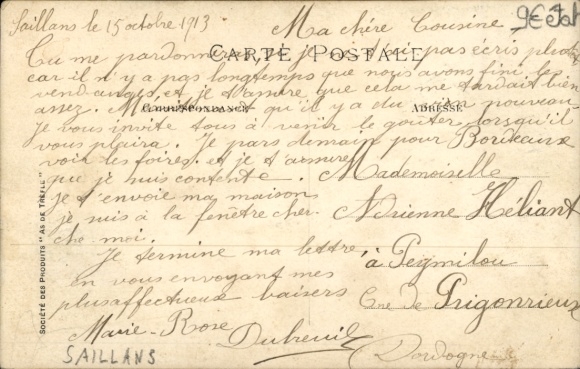 Saillans le 15 octobre 1913
9€
Ma chère Cousine
Tu me pardonneras si je ne t'ai pas écris plutot
CARTE POSTALE
car il n'y a pas longtemps que nous avons fini les
vendanges, et je t'assure que cela me tardait bien
assez. Maintenant qu'il y a du vin nouveau
CORRESPONDANCE
ADRESSE
Je vous invite tous à venir le goûter lorsqu'il
vous plaira. Je pars demain pour Bordeaux
voir les foires. et je t'assure
que je suis contente.
Mademoiselle
je t'envoie ma maison
je suis à la fenêtre cher
Adrienne Héliant
che moi.
Je termine ma lettre
à Peymilou
en vous envoyant mes
plus affectueux baisers
Cne de Prigonrieux
Marie-Rose
Dubreuil
Dordogne
SAILLANS
SOCIÉTÉ DES PRODUITS "AS DE TRÈFLE"